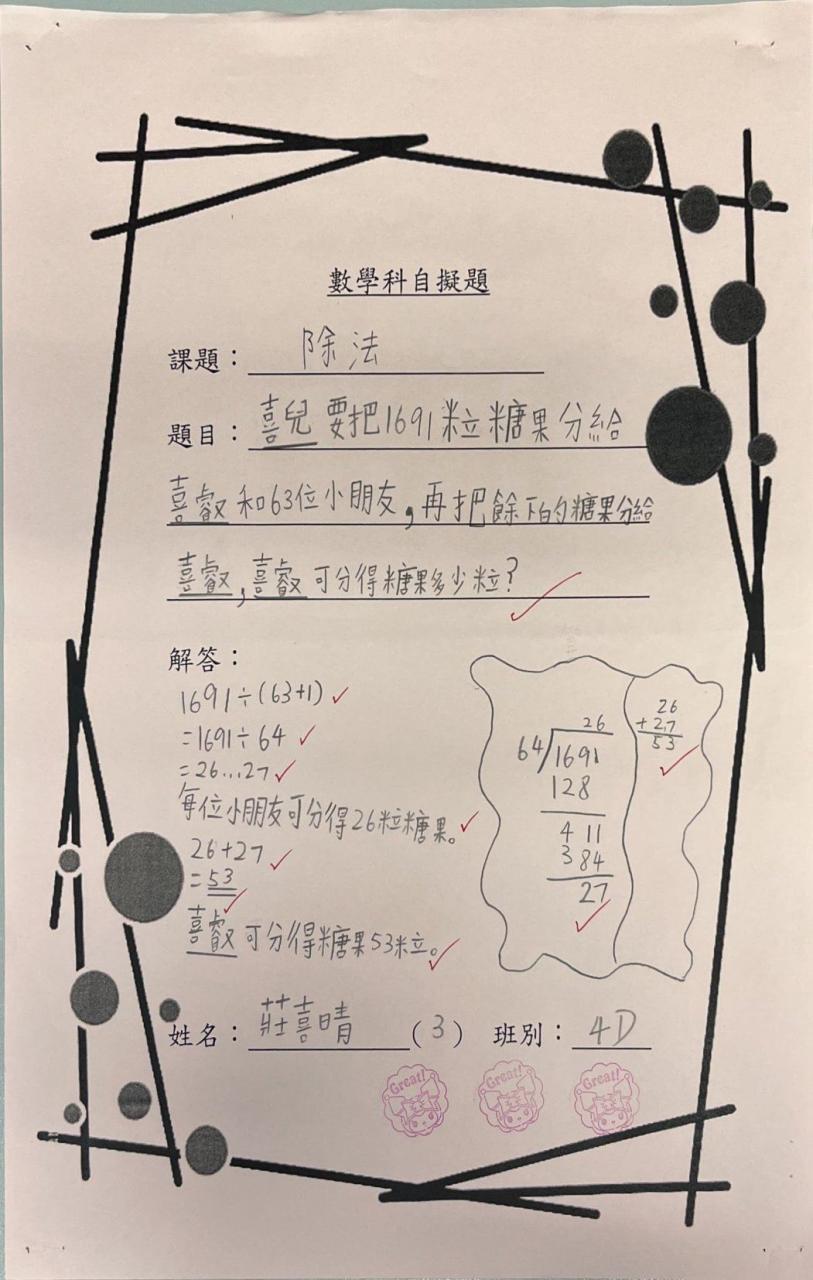 數學科自擬題
課題：除法
題目：喜兒要把1691粒糖果分給
喜叡和63位小朋友，再把餘下的糖果分給
喜叡，喜叡可分得糖果多少粒？
解答：
1691÷(63+1)
=1691÷64
=26...27
每位小朋友可分得26粒糖果。
26+27
=53
喜叡可分得糖果53粒。
26
64
1691
128
411
384
27
26
+27
53
姓名：莊喜晴(3) 班別：4D
Great! Great! Great!